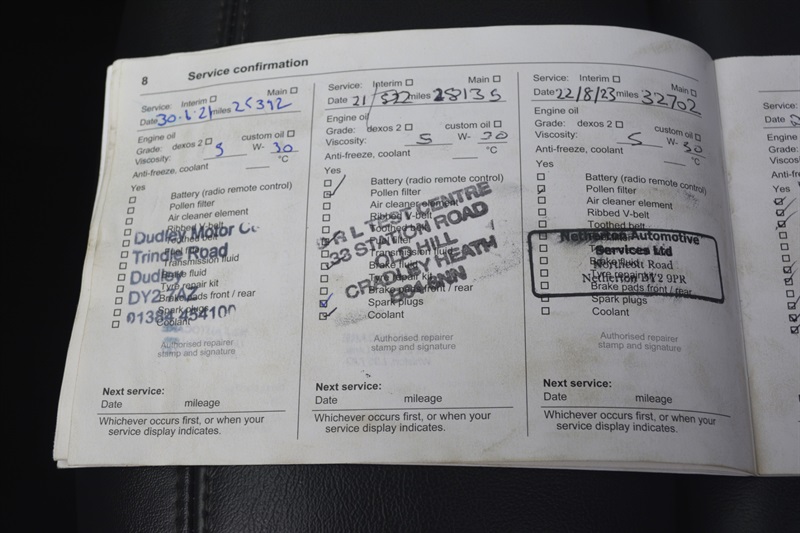 8 Service confirmation
Service: Interim ☐ Main ☐
Date 30.6.21 miles 25392
Engine oil
Grade: dexos 2 ☐ custom oil ☐
Viscosity: 5 W- 30
Anti-freeze, coolant °C
Yes
Battery (radio remote control)
Pollen filter
Air cleaner element
Ribbed V-belt
Toothed belt
Transmission fluid
Brake fluid
Tyre repair kit
Brake pads front / rear
Spark plugs
Coolant
Dudley Motor
Trindle Road
Dudley
DY2 7AZ
01384
Authorised repairer
stamp and signature
Next service:
Date mileage
Whichever occurs first, or when your
service display indicates.
Service: Interim ☐ Main ☐
Date 21 miles 28135
Engine oil
Grade: dexos 2 ☐ custom oil ☐
Viscosity: 5 W- 30
Anti-freeze, coolant °C
Yes
Battery (radio remote control)
Pollen filter
Air cleaner element
Ribbed V-belt
Toothed belt
Transmission fluid
Brake fluid
Tyre repair kit
Brake pads front / rear
Spark plugs
Coolant
R L TEST CENTRE
33 STATION ROAD
OLD HILL
CRADLEY HEATH
Authorised repairer
stamp and signature
Next service:
Date mileage
Whichever occurs first, or when your
service display indicates.
Service: Interim ☐ Main ☐
Date 22/8/23 miles 32702
Engine oil
Grade: dexos 2 ☐ custom oil ☐
Viscosity: 5 W- 30
Anti-freeze, coolant °C
Yes
Battery (radio remote control)
Pollen filter
Air cleaner element
Ribbed V-belt
Toothed belt
Brake fluid
Tyre repair kit
Brake pads front / rear
Spark plugs
Coolant
Netherton Automotive
Services Ltd
Northcott Road
Netherton DY2 9PR
Authorised repairer
stamp and signature
Next service:
Date mileage
Whichever occurs first, or when your
service display indicates.
Service:
Date
Engine
Grade:
Anti-fre
Yes